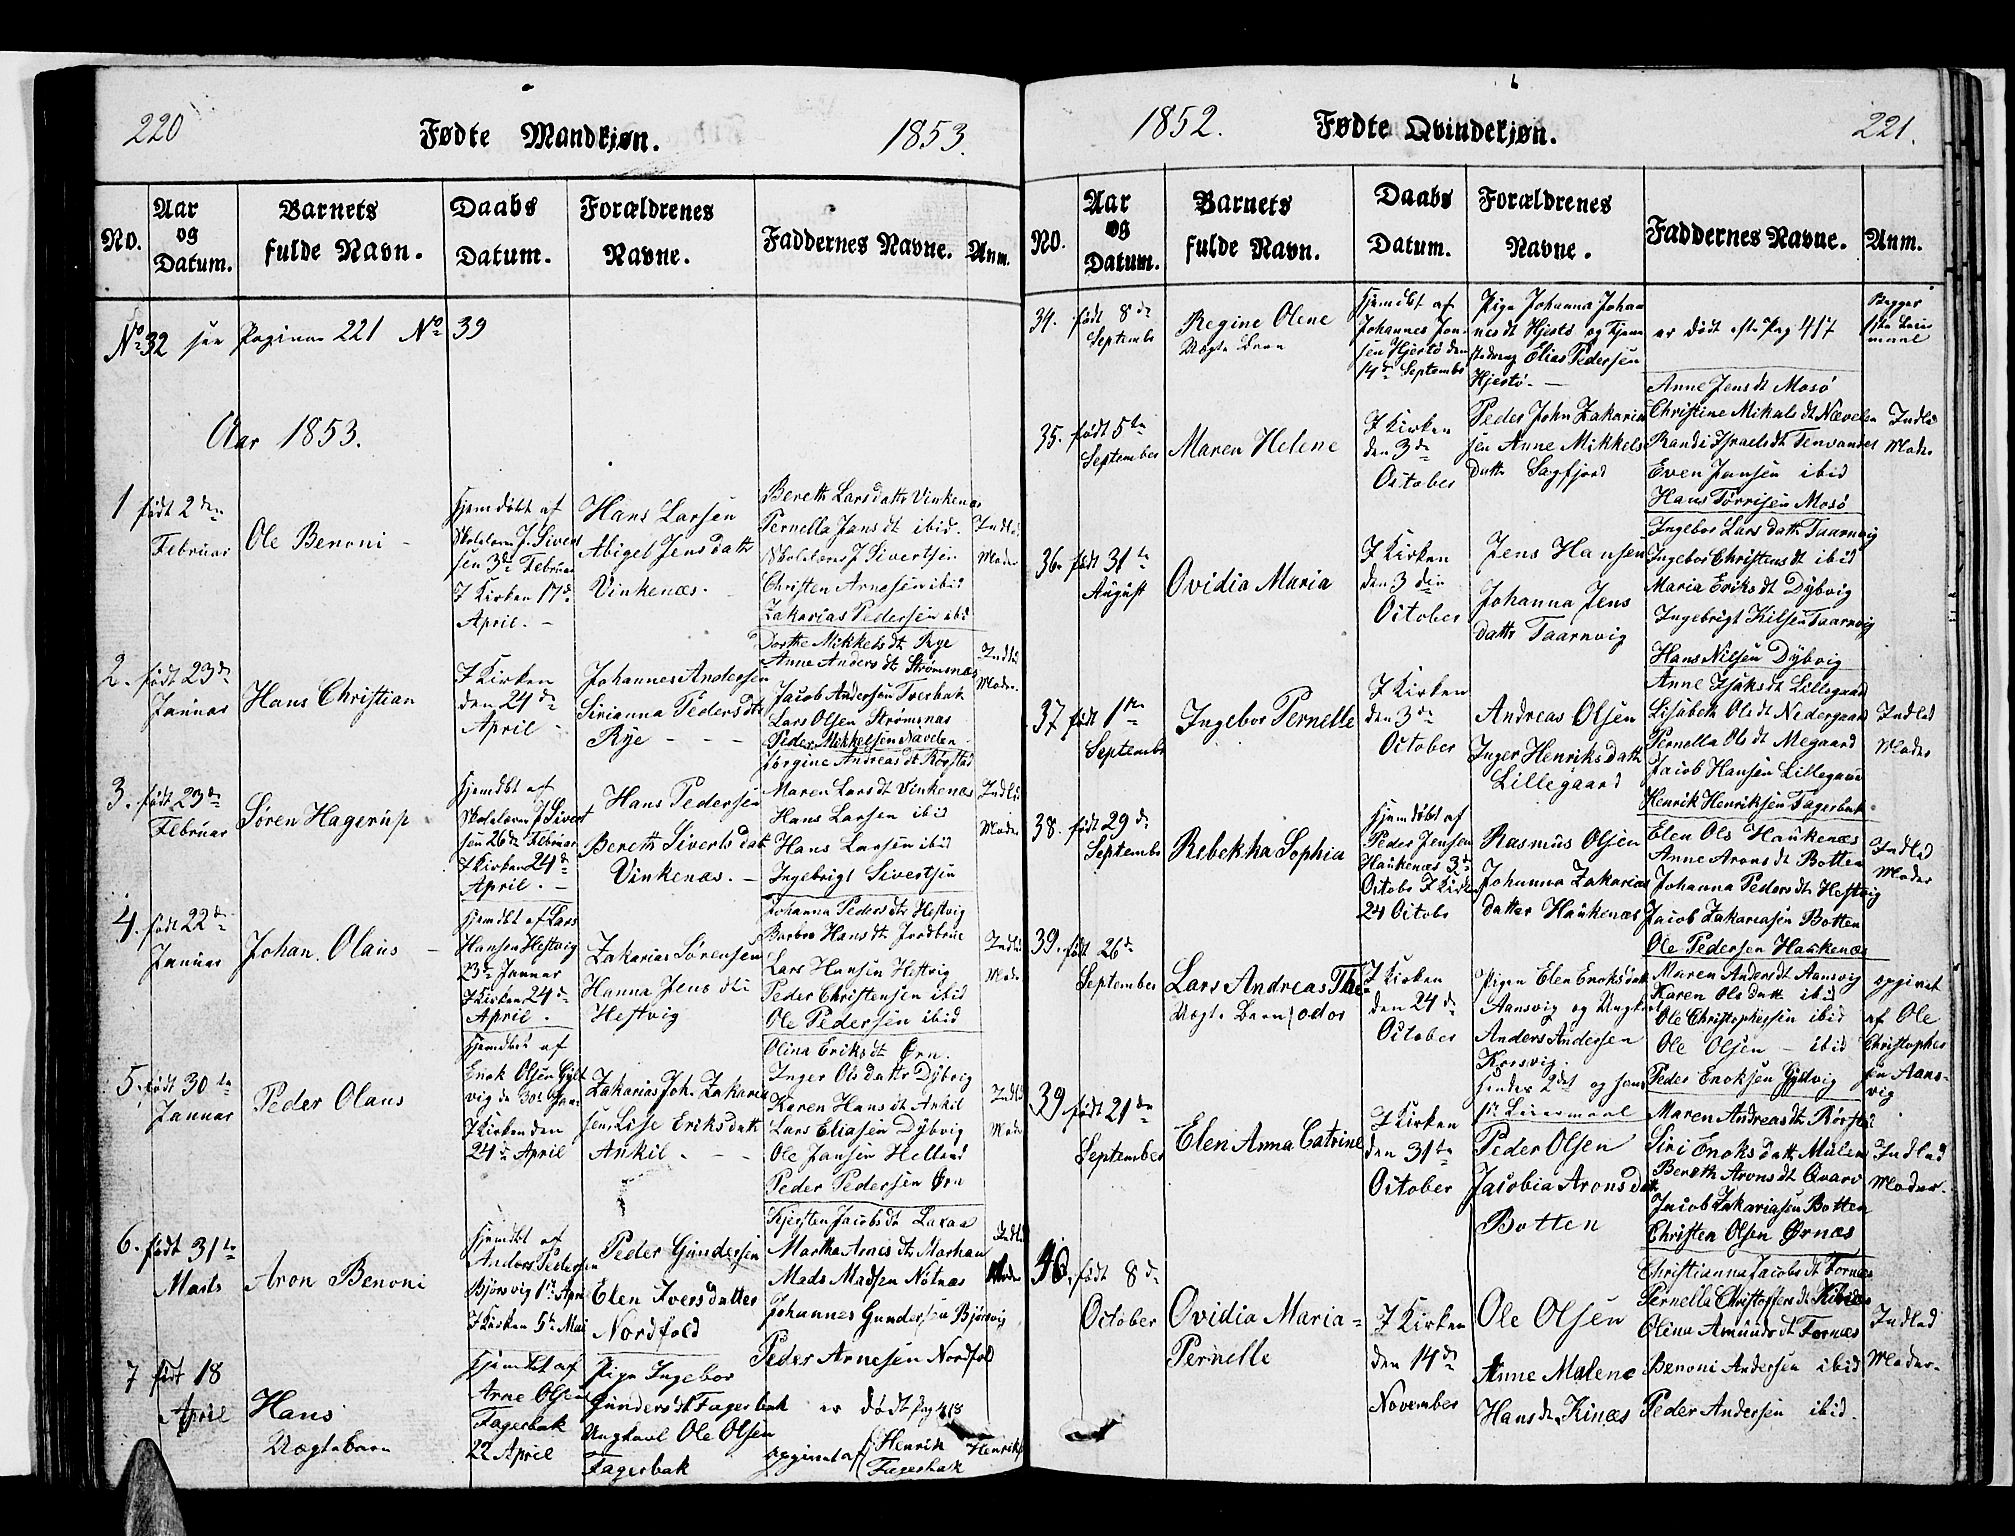 220
Fødte Mandkjøn.
1853.
No.
Aar og Datum.
Barnets fulde Navn.
Daabs Datum.
Forældrenes Navne.
Faddernes Navne.
Anm.
No 32 see Pagina 221 No 39
Aar 1853.
1
født 2den
Februar
Ole Benoni
Hjemdøbt af
Skolelærer J. Sivert
sen 3de Februar
I Kirken 17de
April.
Hans Larsen
Abigel Jensdatter
Vinkenæs.
Bereth Larsdattr Vinkenæs
Pernella Jansdt ibid.
Skolelærer J Sivertsen
Christen Arnesen ibid
Zakarias Pedersen ibd
Indled
Moder
2.
født 23de
Januar
Hans Christian
I Kirken
den 24de
April
Johannes Andersen
Sirianna Pedersdtr
Rye
Dorthe Mikkelsdt Rye
Anne Andersdt Strømnæs
Jacob Andersen Tverbak
Lars Olsen Strømsnas
Peder Mikkelsen Nævelen
Indled
Moder.
3.
født 23de
Februar
Søren Hagerup
Hjemdøbt af
Skolelærer J Sivert
sen 26de Februar
I Kirken 24de
April.
Hans Pedersen
Bereth Sivertsdatt
Vinkenæs.
Jorgine Andreasdt Røgstad
Maren Larsdt Vinkenæs
Hans Larsen ibid
Hans Larsen ibid
Ingebrigt Sivertsen
Indled
Moder
4.
født 22de
Januar
Johan Olaus
Hjemdøbt af Lars
Hansen Hestvig
23de Januar
I Kirken 24de
April.
Zakarias Sørensen
Hanna Jensdtr
Hestvig
Johanna Pedersdtr Hestvig
Barbro Hansdt Jordbrue
Lars Hansen Hestvig
Peder Christensen ibid
Ole Pedersen ibid
Indled
Moder
5.
født 30te
Januar
Peder Olaus
Hjemdøbt af
Enok Olsen Gylt
vig d 30te Jan
I Kirken den
24de April
Zakarias Joh. Zakaria
sen, Lise Eriksdatt
Ankil
Olina Eriksdt Ørn.
Inger Olsdattr Dybvig
Karen Hansdt Ankil
Lars Eliasen Dybvig
Ole Jansen Helland
Peder Pedersen Ørn
Indled
Moder
6.
født 31te
Marts
Aron Benoni
Hjemdøbt af
Anders Pedersen
Bjørsvig 1ste Apr
I Kirken 5te Mai
Peder Gundersen
Elen Iversdatter
Nordfold
Kjersten Jacobsdtr Laxaa
Martha Arnesdtr Morhan
Mads Madsen Nøtnæs
Johannes Gundersen Bjørsvig
Peder Arnesen Nordfold
Indled
Moder
7
født 18
April
Hans
Uægte barn
Hjemdøbt af
Arne Olsen
Fagerbak
22 April
Pige Ingebor
Gundersdt Fagerbak
Ungkarl Ole Olsen
Fagerbak
er død pag 418
opgivet af Henrik Henriks
Fagerbak
1852.
Fødte Qvindekjøn.
221.
No.
Aar og Datum.
Barnets fulde Navn.
Daabs Datum.
Forældrenes Navne.
Faddernes Navne.
Anm.
34.
født 8de
Septembr
Regine Olene
Uægte Barn
Hjemdøbt af
Johannes Jon
sen Hjertø den
14de Septembr
Pige Johanna Johan
nesdt Hjertø og
Elias Pedersen
Hjertø.
er død efter Pag 417
Begges
1ste Leier
maal
35.
født 5te
September
Maren Helene
I Kirken
den 3de
October
Peder John Zakaria
sen Anne Mikkels
Dattr Sagfjord
Anne Jensdt Mosø
Christine Mikalsdt Nævelen
Randi Israelsdt Tenvandet
Even Jansen ibid
Hans Tørrisen Mosø
Indled
Moder
36.
født 31te
August
Ovidia Maria
I Kirken
den 3den
October
Jens Hansen
Johanna Jens
dattr Taarnvig
Ingebor Larsdattr Taarnvig
Ingebor Christensdt ibid
Maria Eriksdt Dybvig
Ingebrigt Kilsen Taarnvig
Hans Nilsen Dybvig
37
født 1ste
Septembr
Ingebor Pernelle
I Kirken
den 3de
October
Andreas Olsen
Inger Henriksdatt
Lillegaard
Anne Isaksdt Lillegaard
Lisabeth Olsdt Nedergaard
Pernella Olsdt Megaard
Jacob Hansen Lillegaard
Henrik Henriksen Fagerbak
Indled
Moder
38.
født 29de
Septembr
Rebekka Sophia
Hjemdøbt af
Peder Jensen
Haukenæs 3de
Octobr I Kirken
24 Octobr
Rasmus Olsen
Johanna Zakarias
datter Haukenæs
Elen Ols Haukenæs
Anne Aronsdt Botten
Johanna Pedersdt Hestvig
Jacob Zakariasen Botten
Ole Pedersen Haukenæs
Indled
Moder
39.
født 26de
September
Lars Andreas The
odor
Uægte Barn
I Kirken
den 24de
October
Pigen Elen Enoksdatt
Aansvig og Ungk
Anders Andersen
Korsvig
hendes 2det og hans
1ste Leiermaal
Maren Andersdt Aansvig
Karen Olsdatt ibid
Ole Christophersen ibid
Ole Olsen - ibid
Peder Enoksen Gyltvig
opgivet
af Ole
Christopher
sen Aans-
vig
39.
født 21de
September
Elen Anna Catrine
I Kirken
den 31te
October
Peder Olsen
Jacobia Aronsdatt
Botten
Maren Andreasdt Rørstad
Siri Enoksdatt Mulen
Bereth Aronsdt Qvarv
Jacob Zakariasen Botten
Christen Olsen Ørnæs
Indled
Moder.
40.
født 8de
October
Ovidia Maria=
Pernelle
I Kirken
den 14de
November
Ole Olsen
Anne Malene
Hansdtr Kinæs
Christianna Jacobsdt Fornæs
Pernella Christoffersdt Kinæs
Olina Amundsdt Fornæs
Benoni Andersen ibid
Peder Andersen ibid.
Indled
Moder.